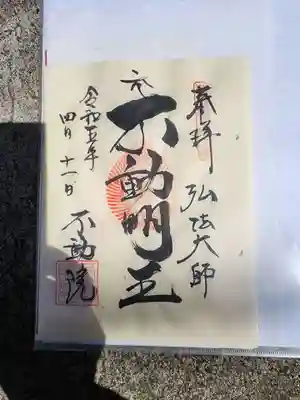 奉拝 弘法大師
不動明王
令和五年
四月十一日
不動院